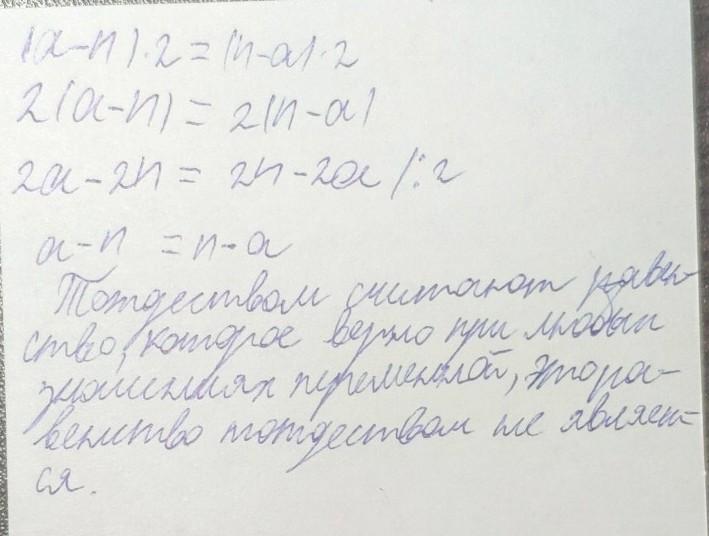 (a-n)·2=(n-a)·2
2(a-n)= 2(n-a)
2a-2n= 2n-2a /:2
a-n =n-a
Тождеством считают равен-
ство, которое верно при любых
значениях переменной, это ра-
венство тождеством не являет-
ся.